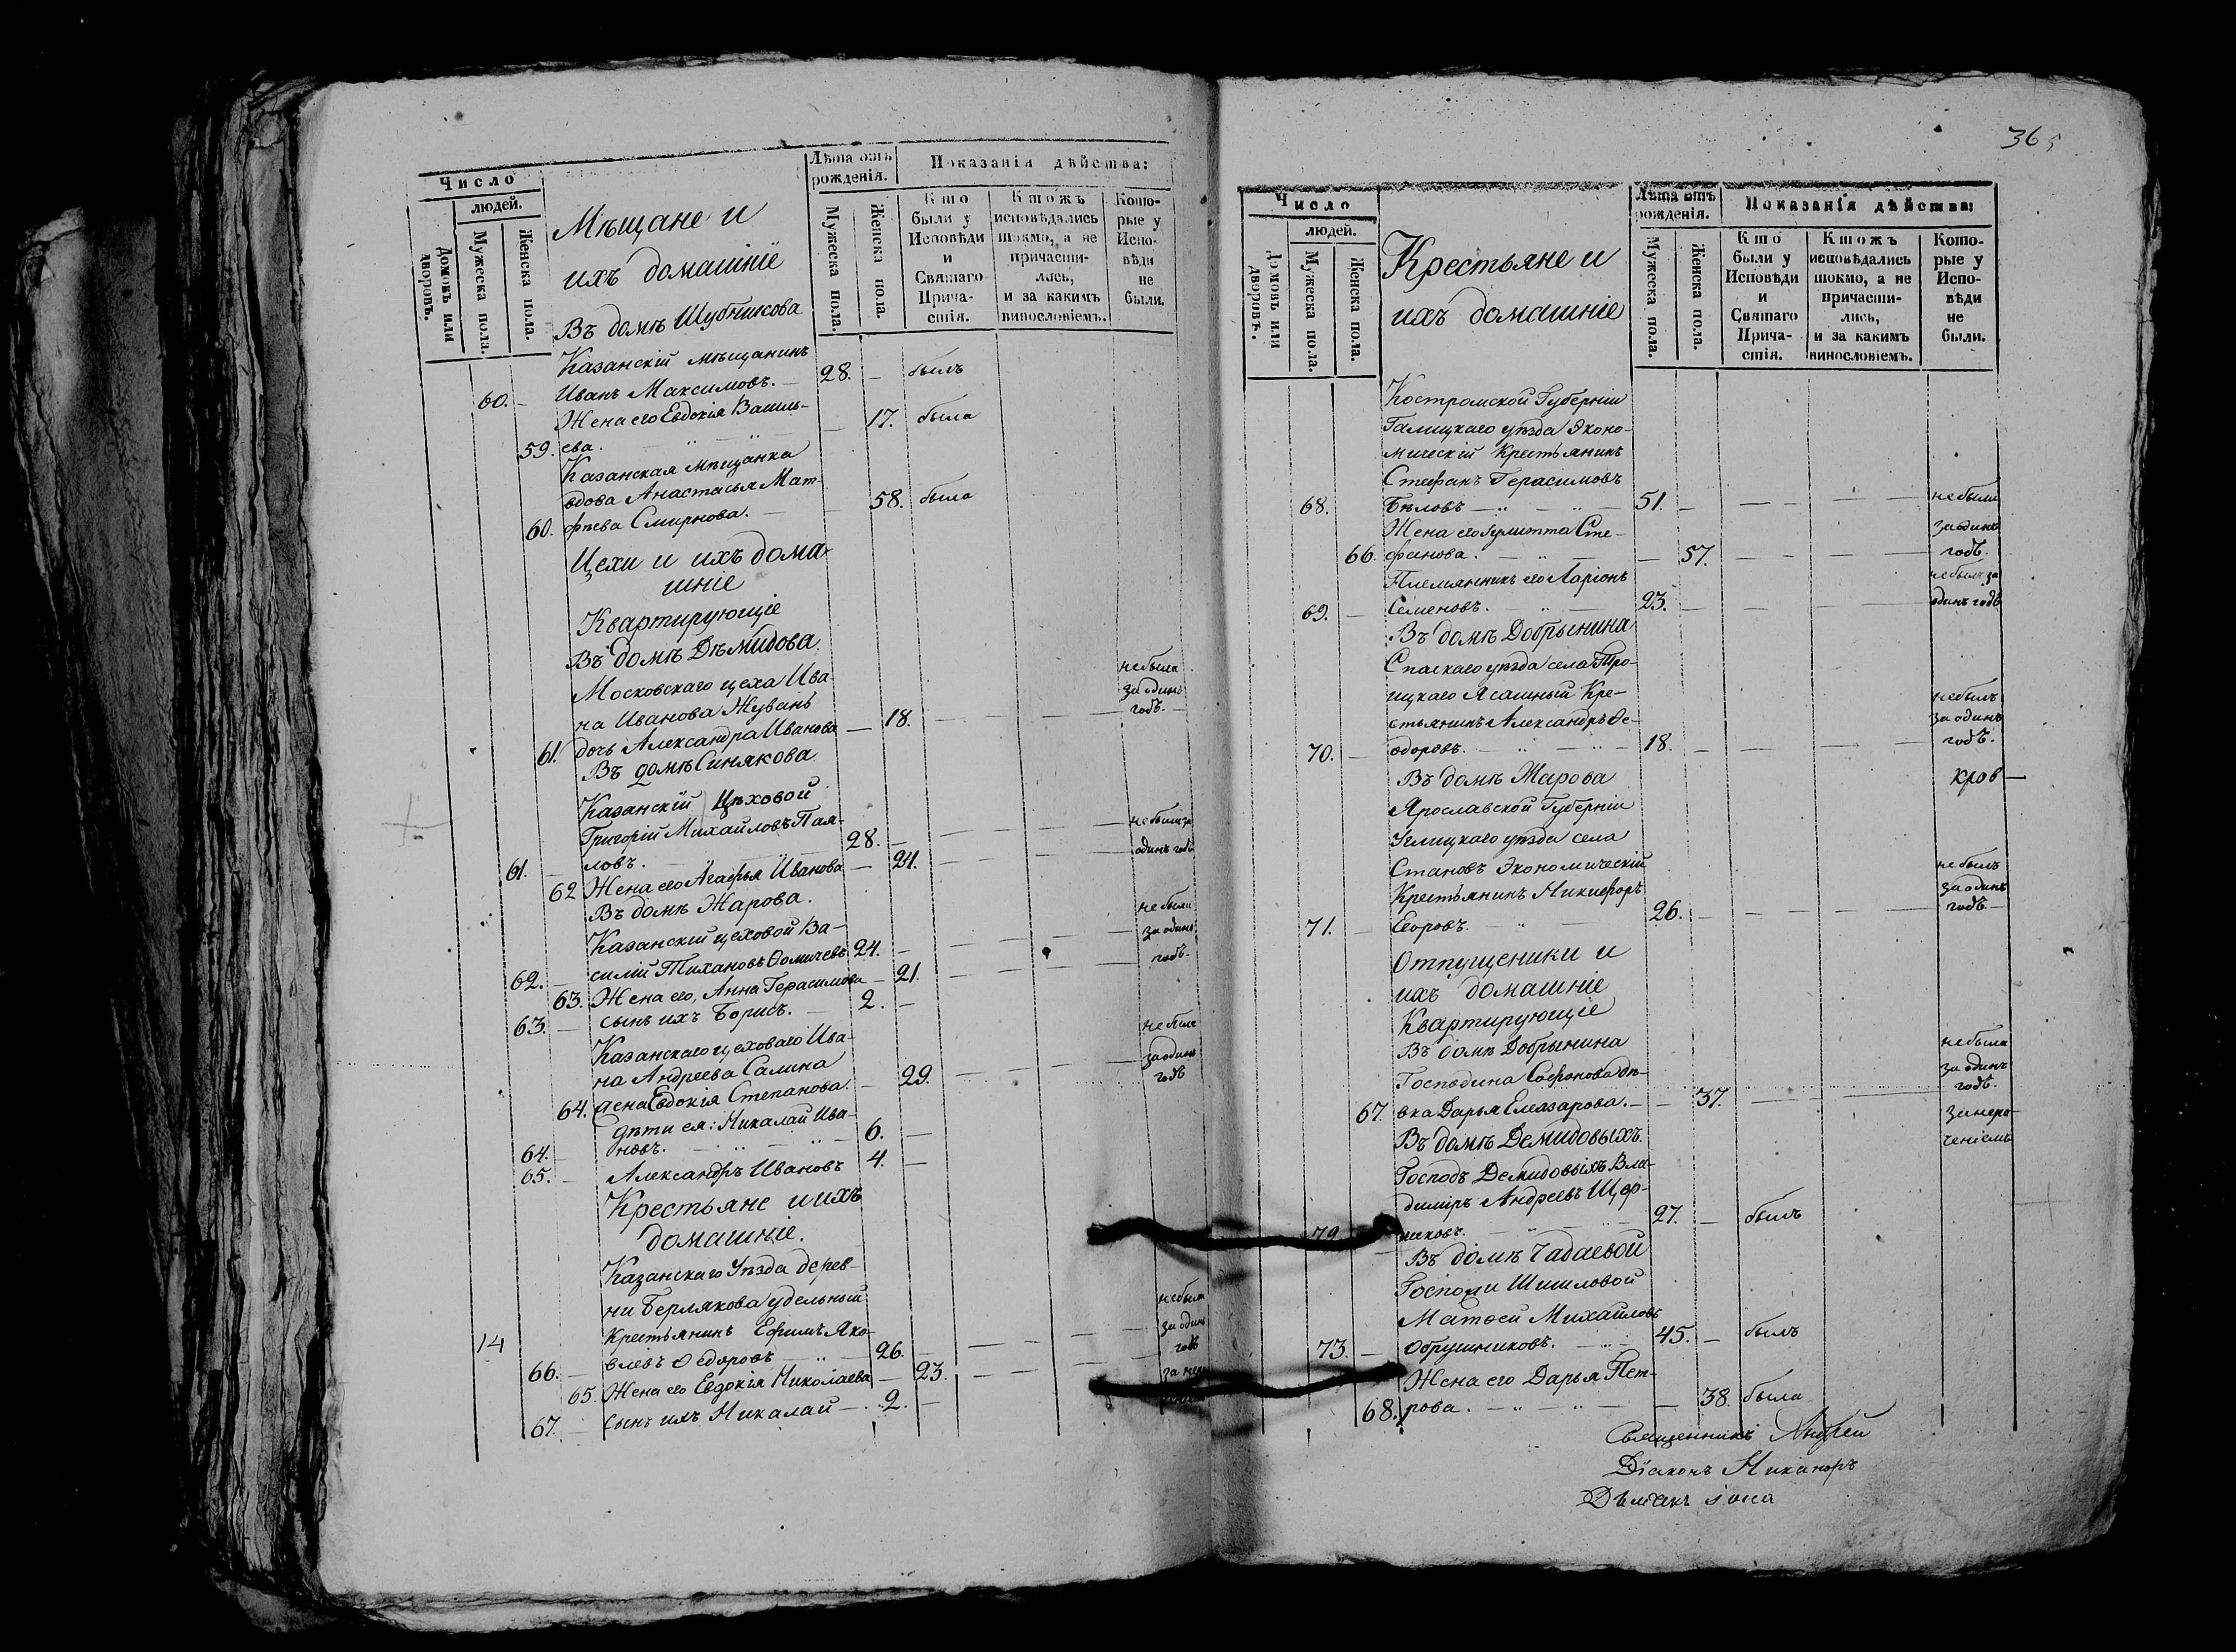 Число
людей.
Домовъ или дворовъ.
Мужеска пола.
Женска пола.
Мѣщане и
ихъ домашніе
Лѣта отъ рожденія.
Мужеска пола.
Женска пола.
Показанія дѣйства:
Кто были у Исповѣди и Святаго Причастія.
Ктожъ исповѣдались токмо, а не причастились, и за какимъ винословіемъ.
Которые у Исповѣди не были.
Въ домѣ Шубникова
Казанскій мѣщанинъ
60. Иванъ Максимовъ. 28. былъ
Жена его Евдокія Василь-
59. ева. 17. была
Казанская мѣщанка
вдова Анастасья Мат-
60. фѣева Смирнова. 58. была
Цехи и ихъ дома-
шніе
Квартирующіе
Въ домѣ Дѣмидова.
Московскаго цеха Ива-
на Иванова Жувань
61. дочь Александра Иванова 18. не была за одинъ годъ.
Въ домѣ Синякова
Казанскій Цѣховой
Григорій Михайловъ Пая-
61. ловъ. 28. не были за
62 Жена его Агафья Иванова 24. одинъ годъ
Въ домѣ Жарова.
Казанскій цеховой Ва-
62. силій Тихановъ Ѳомичевъ 24. не были за одинъ годъ.
63. Жена его, Анна Герасимова 21.
63. сынъ ихъ Борисъ. 2.
Казанскаго цеховаго Ива-
на Андреева Салина
64. жена Евдокія Степанова. 29. за одинъ годъ
дѣти ея: Николай Ива-
64. новъ. 6.
65. Александръ Ивановъ 4.
Крестьяне и ихъ
домашніе.
Казанскаго Уѣзда дерев-
ни Берлякова удельный
14 крестьянинъ Ефимъ Яко-
66. влевъ Ѳедоровъ 26. за одинъ годъ
65. Жена его Евдокія Николаева 23.
67. сынъ ихъ Николай 2.
365
Число
людей.
Домовъ или дворовъ.
Мужеска пола.
Женска пола.
Крестьяне и
ихъ домашніе
Лѣта отъ рожденія.
Мужеска пола.
Женска пола.
Показанія дѣйства:
Кто были у Исповѣди и Святаго Причастія.
Ктожъ исповѣдались токмо, а не причастились, и за какимъ винословіемъ.
Которые у Исповѣди не были.
Костромской Губерніи
Галицкаго уѣзда Эконо-
мическій Крестьянинъ
Стефанъ Герасимовъ
68. Бѣловъ 51. не были
Жена его Iулитта Сте- за одинъ
66. фанова. 57. годъ.
Племянникъ его Ларіонъ не былъ за
69. Семеновъ. 23. одинъ годъ
Въ домѣ Добрынина
Спаскаго уѣзда села Тро-
ицкаго Ясашный Кре- не былъ
стьянинъ Александръ Ѳе- за одинъ
70. одоровъ. 18. годъ.
Въ домѣ Жарова
Ярославской Губерніи
Углицкаго уѣзда села
Становъ Экономическій не былъ
Крестьянинъ Никифоръ за одинъ
71. Егоровъ. 26. годъ.
Отпущеники и
ихъ домашніе
Квартирующіе
Въ домѣ Добрынина не была
Господина Софонова дѣ- за одинъ годъ.
67. вка Дарья Елеазарова. 37. за нера-
Въ домѣ Демидовыхъ. ченіемъ
Господъ Демидовыхъ Вла-
димiръ Андреевъ Щер-
72. наковъ. 27. былъ
Въ домѣ Чадаевой
Госпожи Шишловой
Матѳей Михайловъ
73. Обрушниковъ. 45. былъ
Жена его Дарья Пет-
68. рова. 38. была
Священникъ Андрей
Діаконъ Никаноръ
Дьячекъ Iона